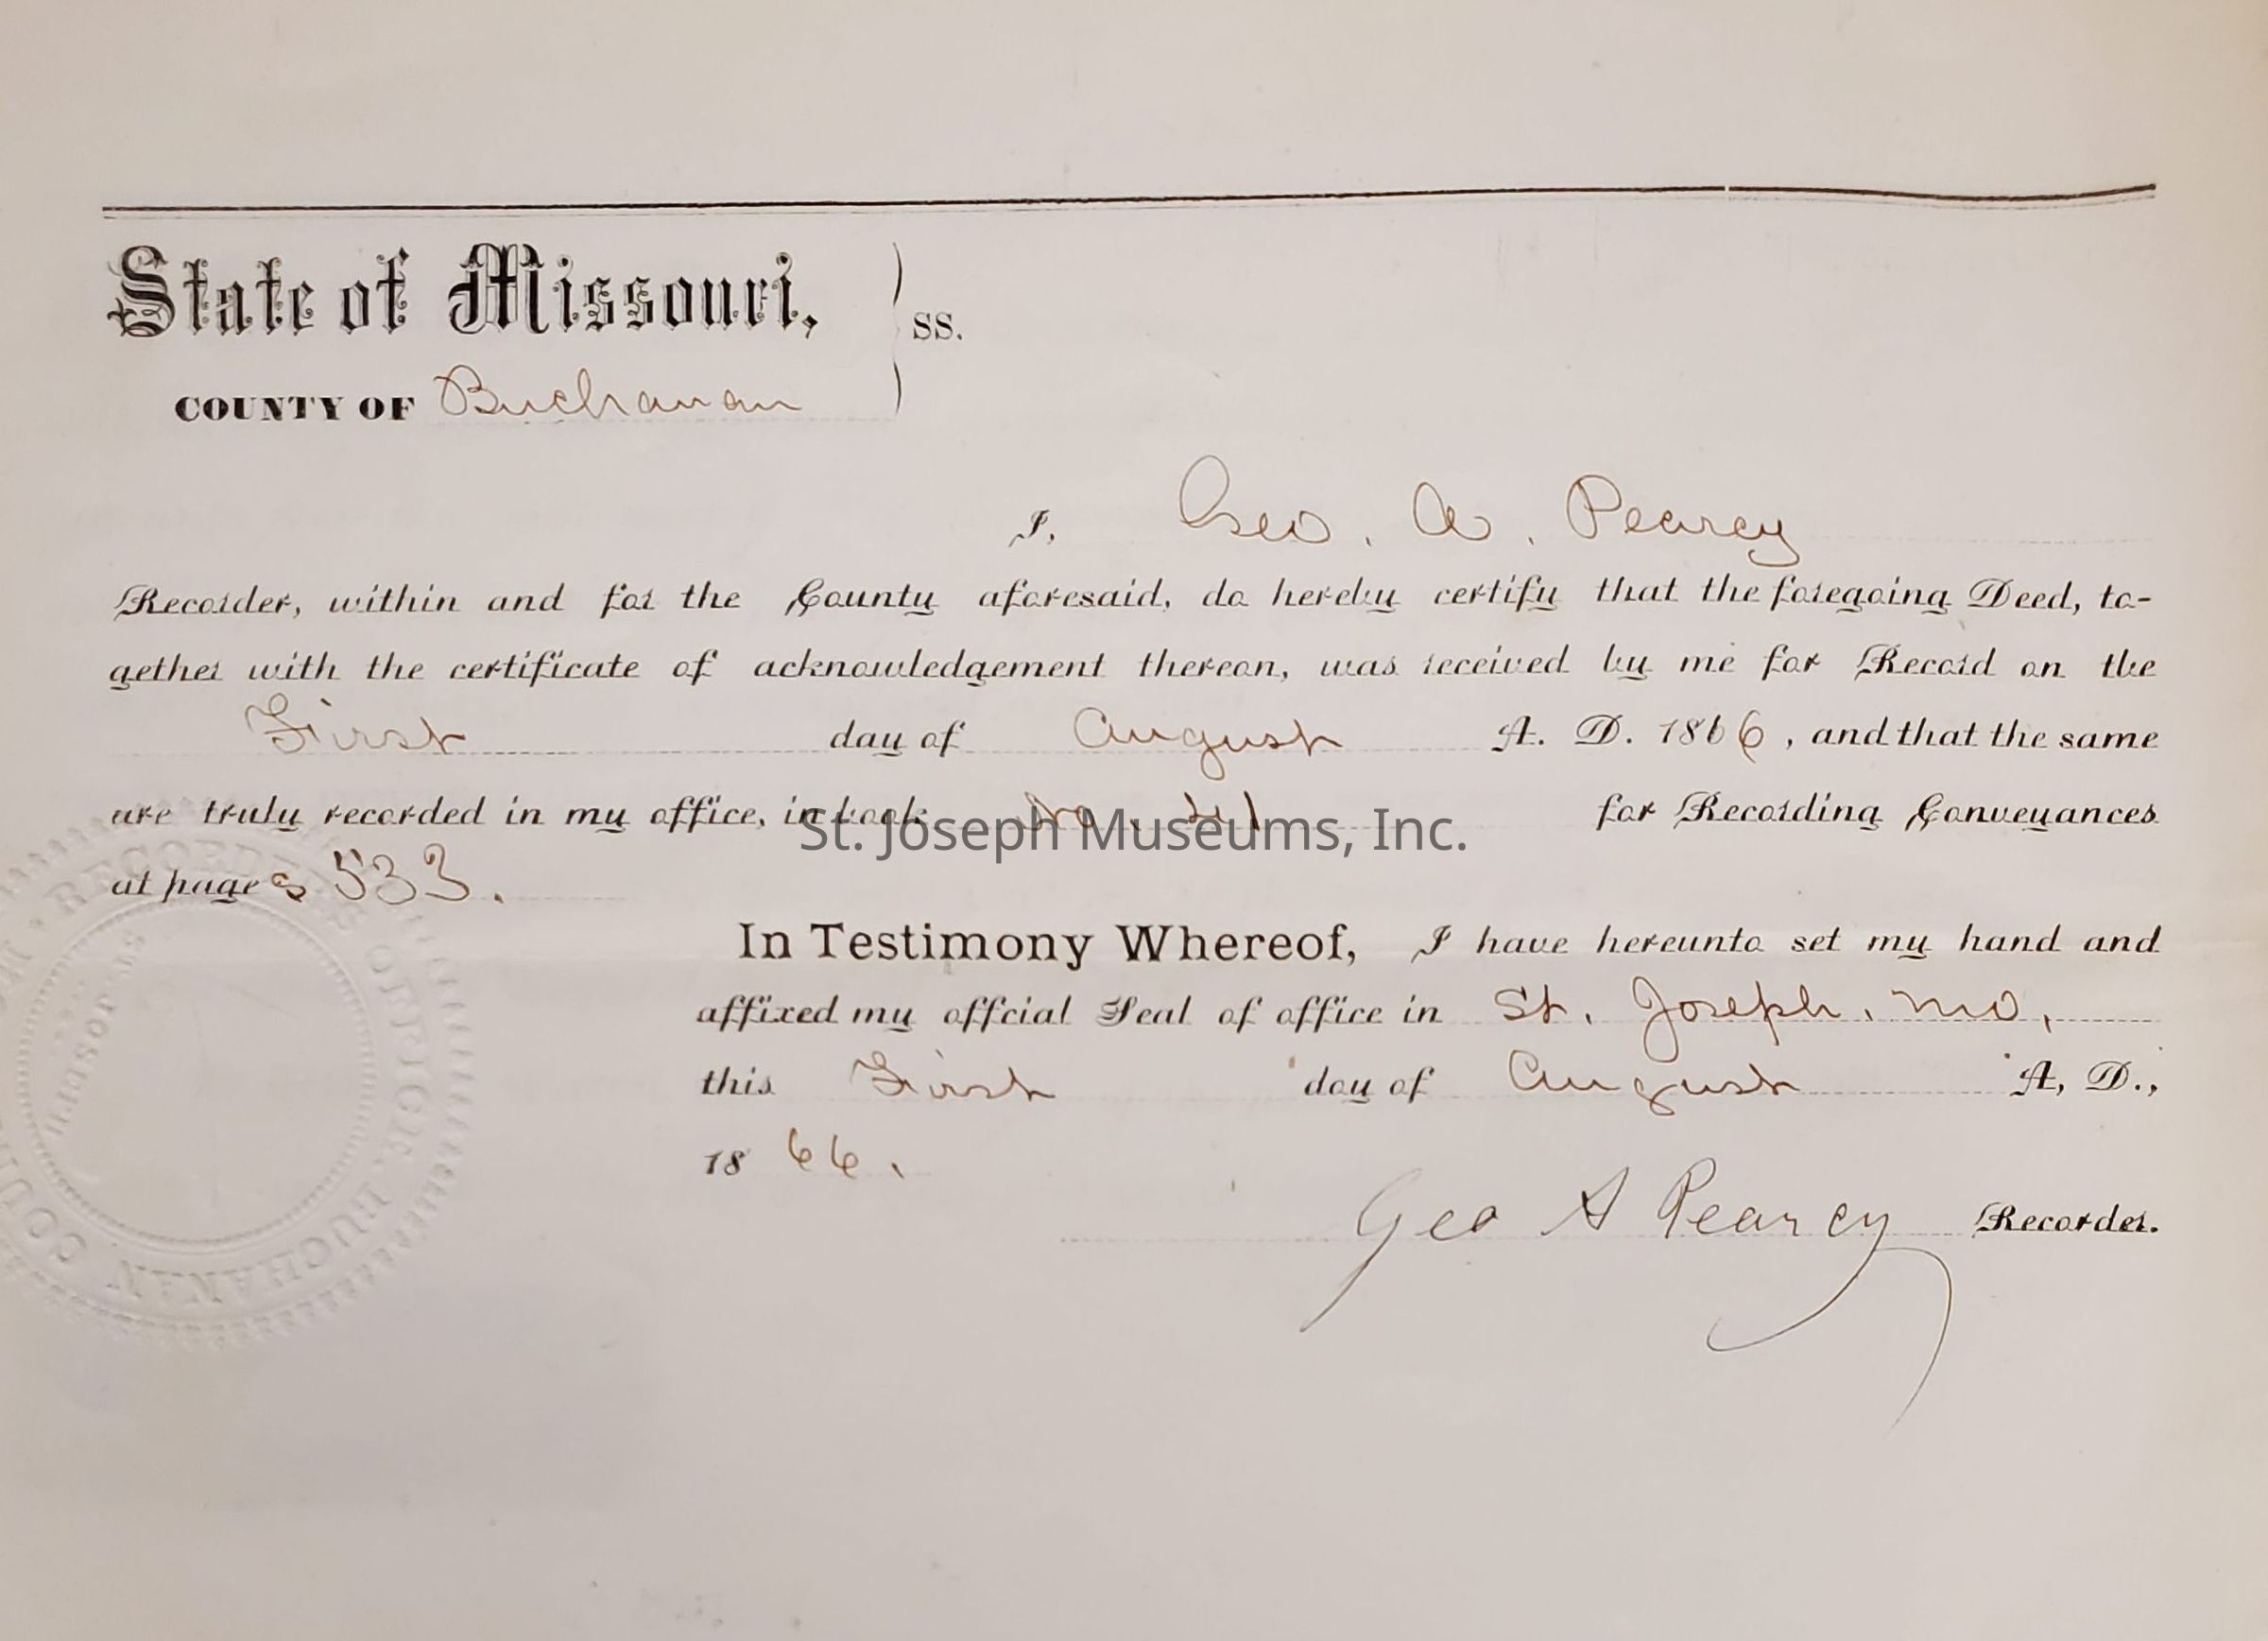 State of Missouri,
SS.
COUNTY OF Buchanan
I, Geo. A. Pearcy
Recorder, within and for the County aforesaid, do hereby certify that the foregoing Deed, to-
gether with the certificate of acknowledgement thereon, was received by me for Record on the
First day of August A. D. 1866, and that the same
are truly recorded in my office, in book No. 41 for Recording Conveyances
St. Joseph Museums, Inc.
at pages 533.
In Testimony Whereof, I have hereunto set my hand and
affixed my offcial Seal of office in St. Joseph, Mo,
this First day of August A, D.,
1866.
Geo A Pearcy Recorder.
RECORDER'S OFFICE, BUCHANAN COUNTY
ST. JOSEPH